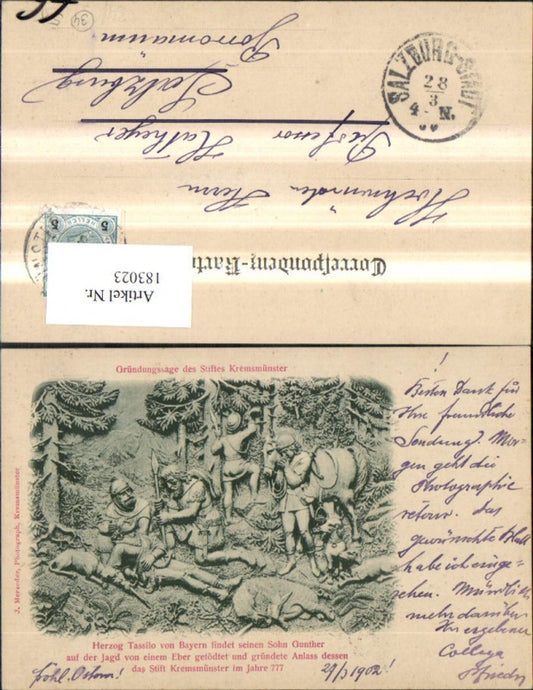 Correspondenz-Karte
Hochwürden Herrn
Professor
Salzburg
Borromäum
SALZBURG-STADT
28
3
4 N.
5 5
34
Artikel Nr.
183023
Gründungssage des Stiftes Kremsmünster
J. Merzeder, Photograph, Kremsmünster
Herzog Tassilo von Bayern findet seinen Sohn Gunther
auf der Jagd von einem Eber getödtet und gründete Anlass dessen
das Stift Kremsmünster im Jahre 777
!
Besten Dank für
Ihre freundliche
Sendung! Mor-
gen geht die
Photographie
retour. das
gewünschte Blatt
habe ich einge-
sehen. Mündlich
mehr darüber
Ihr ergebener
Collega
Friedr
fröhl. Ostern!
27/3 1902!